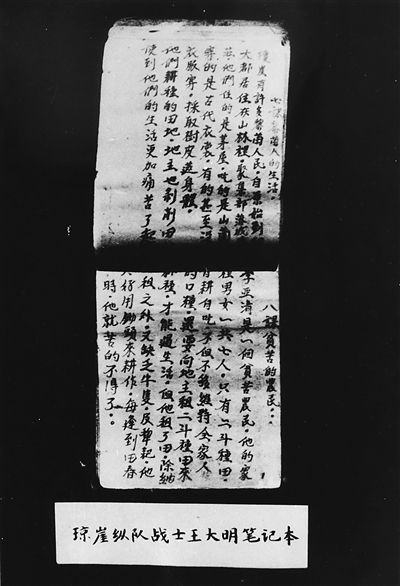 七課黎苗人的生活。
瓊崖有許多黎苗人民。自原始到
大都居住在山林裡聚集部落
他們住的是茅屋。吃的是山
穿的是古代衣裳。有的甚至沒
衣服穿。採取樹皮遮身體。
他們耕種的田地。地主也剝削田
使到他們的生活更加痛苦了起
八課貧苦的農民。
李亚清是一個貧苦農民。他的家
男女一共七人。只有二斗種田。
有耕自吃。不但不能維持全家人
的口糧。還要向地主租二斗種田來
耕種。才能過生活。但他租了田。除納
租之外。又缺乏牛隻。反犁耙。他
只好用鋤頭來耕作。每逢到田春
時。他就苦的不得了。
琼崖纵队战士王大明笔记本